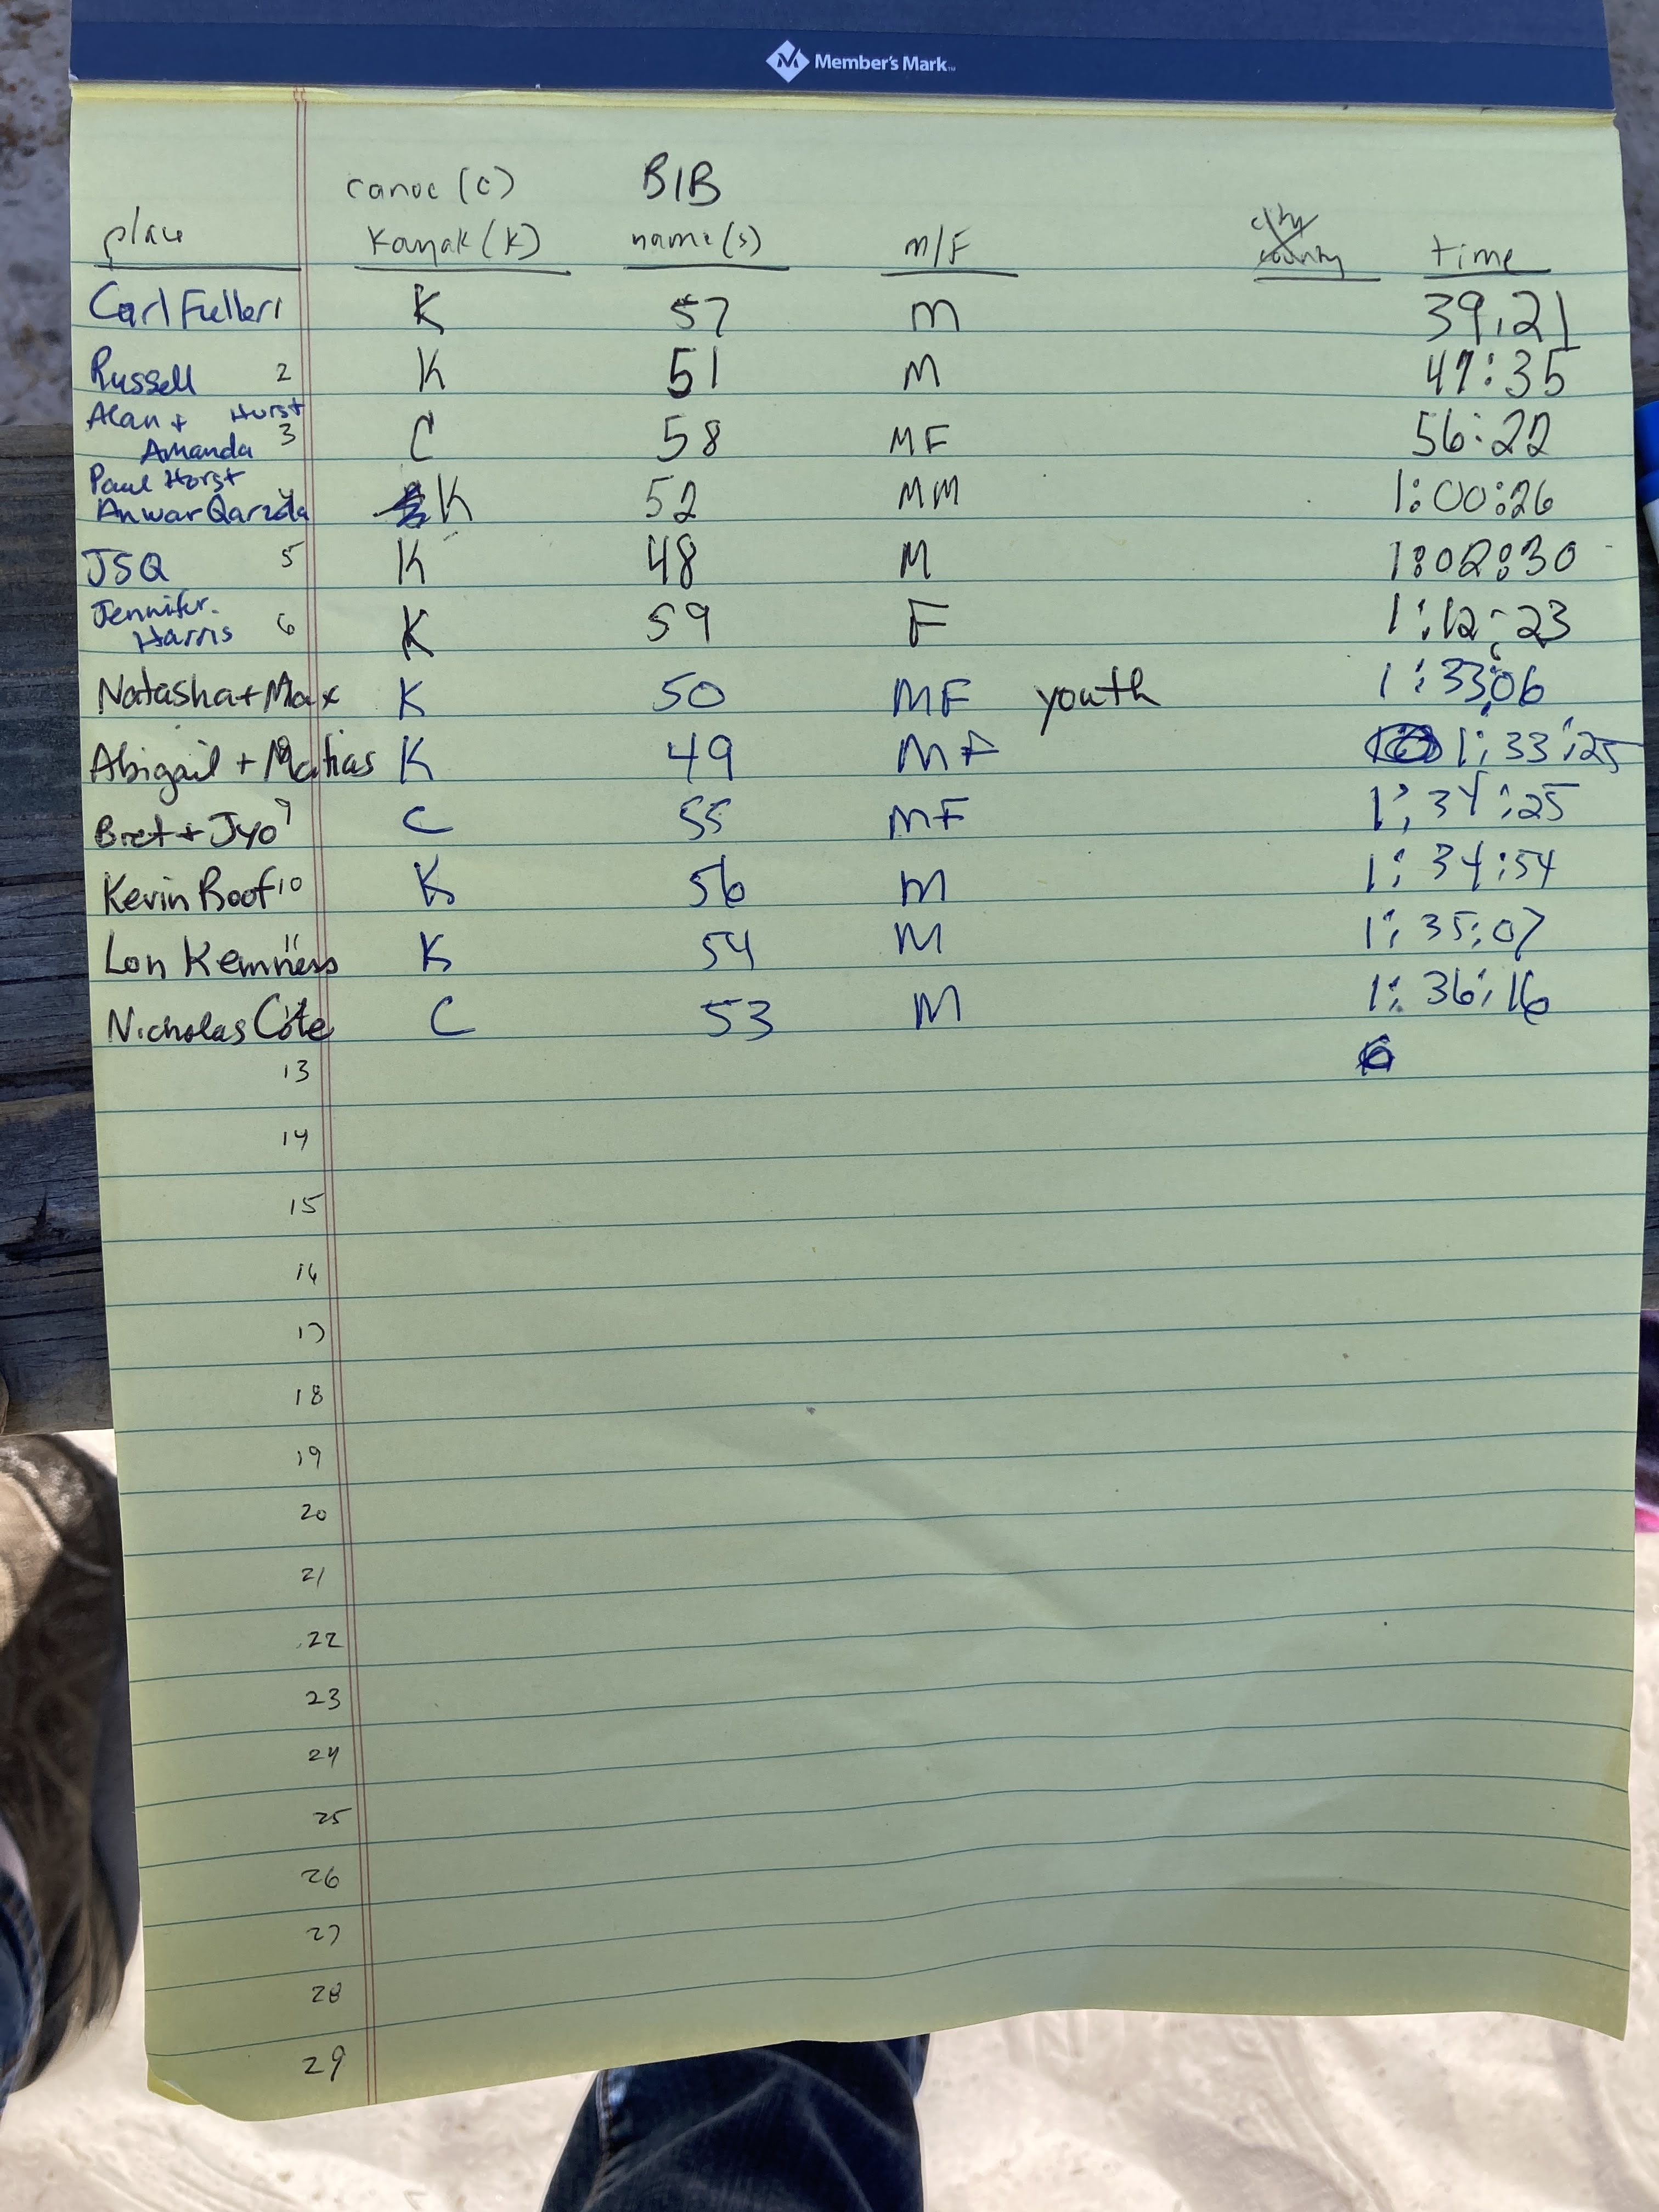 Member's Mark
canoe (c) BIB
place Kayak (K) name(s) m/F time
Carl Fuller 1 K 57 M 39:21
Russell 2 K 51 M 47:35
Alan + Hurst
Amanda 3 C 58 MF 56:22
Paul Horst
Anwar K 52 MM 1:00:26
JSQ 5 K 48 M 1:02:30
Jennifer
Harris 6 K 59 F 1:12:23
Natasha + Max K 50 MF youth 1:33:06
Abigail + Matias K 49 MF 1:33:25
Bret + Jyo 9 C 55 MF 1:34:25
Kevin Roof 10 K 56 M 1:34:54
Lon 11 K 54 M 1:35:07
Nicholas Côte C 53 M 1:36:16
13
14
15
16
17
18
19
20
21
22
23
24
25
26
27
28
29